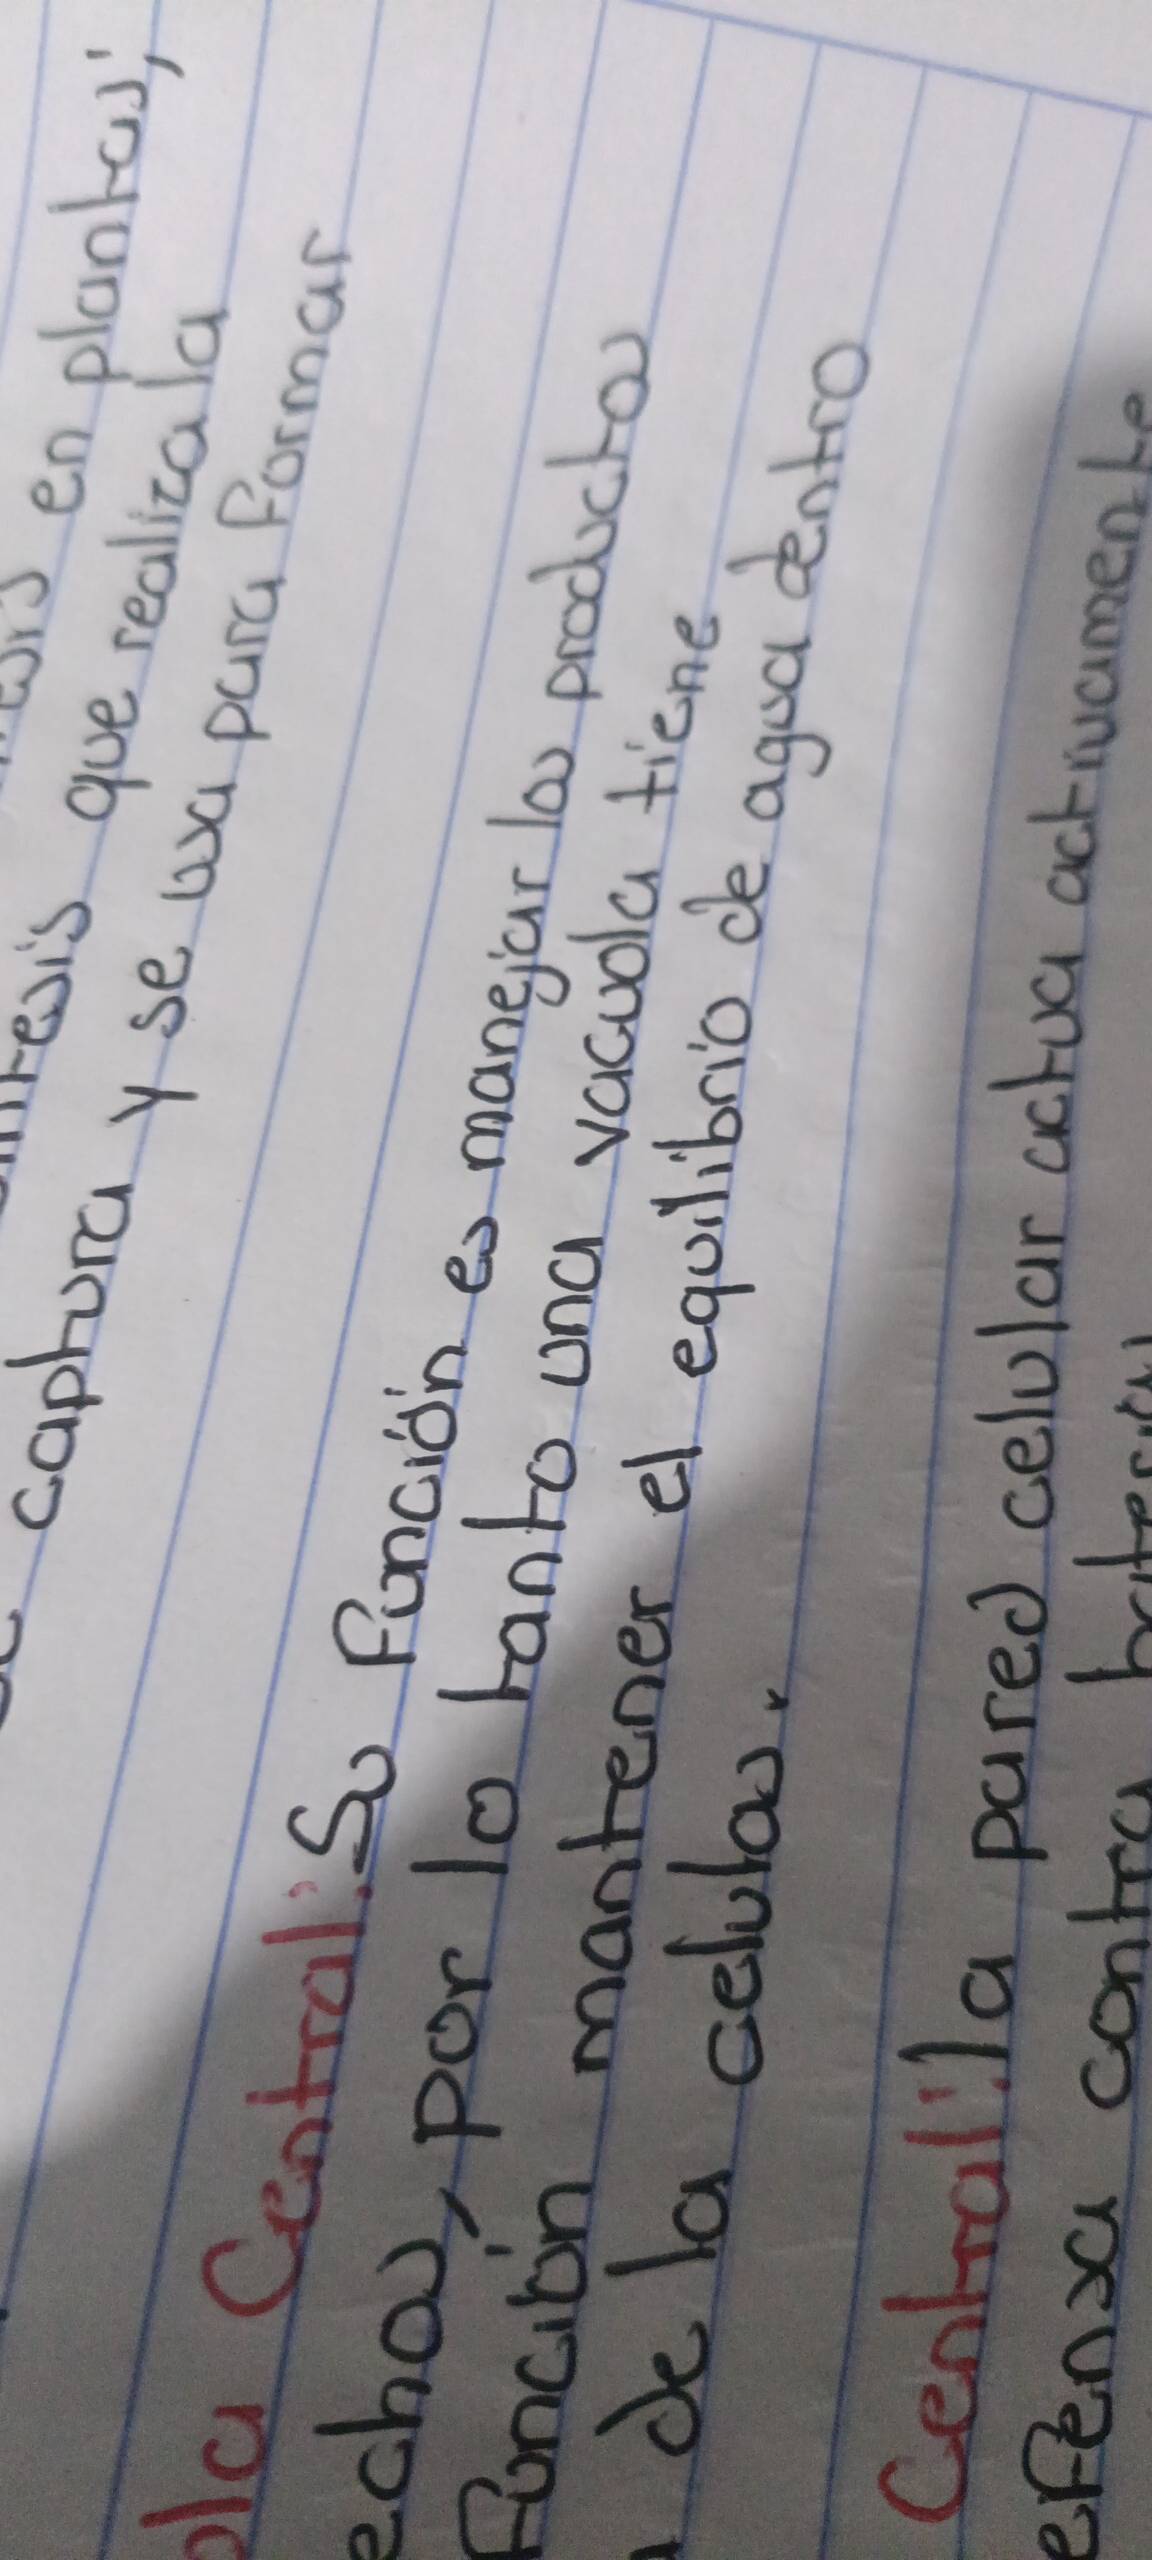 en plantas,
que realiza la
captura y se usa para formar
Central: Su función es manejar los productos
echos, por lo tanto una vacuola tiene
función mantener el equilibrio de agua dentro
de la celulas.
Central: la pared celular actua activamente
contra